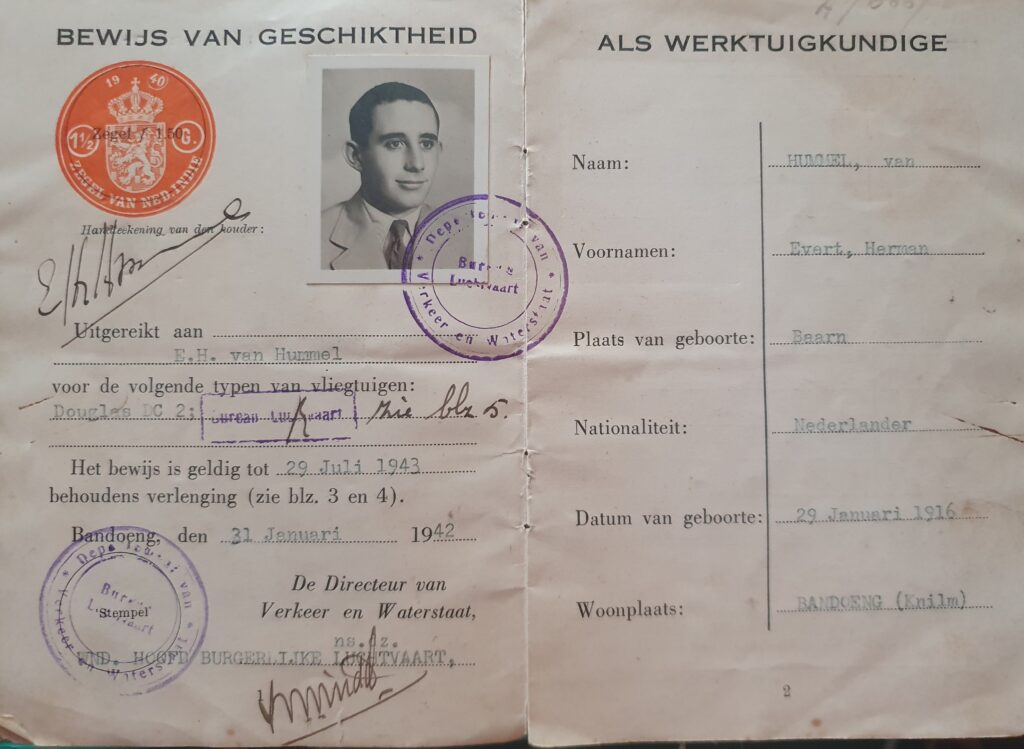 BEWIJS VAN GESCHIKTHEID
1940
Zegel f 1.50
1½ G.
ZEGEL VAN NED. INDIE
Handteekening van den houder:
Departement van Verkeer en Waterstaat
Bureau
Luchtvaart
Uitgereikt aan
E.H. van Hummel
voor de volgende typen van vliegtuigen:
Douglas DC 2; Bureau Luchtvaart zie blz 5.
Het bewijs is geldig tot 29 Juli 1943
behoudens verlenging (zie blz. 3 en 4).
Bandoeng, den 31 Januari 1942
Departement van Verkeer en Waterstaat
Bureau
Luchtvaart
Stempel
De Directeur van
Verkeer en Waterstaat,
ns.dz.
WND. HOOFD BURGERLIJKE LUCHTVAART,
ALS WERKTUIGKUNDIGE
Naam: HUMMEL, van
Voornamen: Evert, Herman
Plaats van geboorte: Baarn
Nationaliteit: Nederlander
Datum van geboorte: 29 Januari 1916
Woonplaats: BANDOENG (Knilm)
2